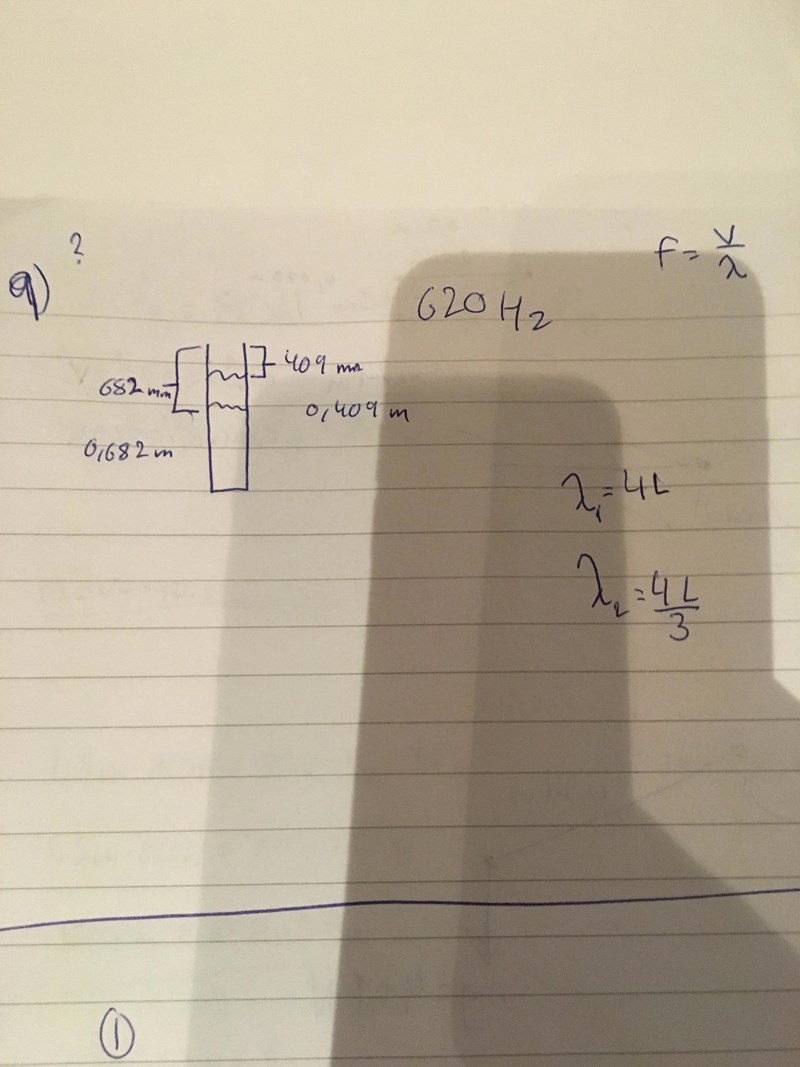 ?
9)
f = v/λ
620 Hz
409 mm
682 mm
0,409 m
0,682 m
λ₁ = 4L
λ₂ = 4L/3
①